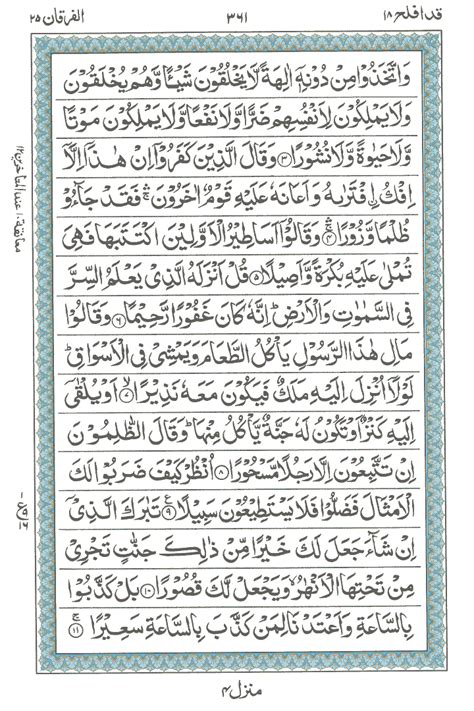 قد افلح ١٨ ٣٦١ الفرقان ٢٥
وَاتَّخَذُوْا مِنْ دُوْنِهٖٓ اٰلِهَةً لَّا يَخْلُقُوْنَ شَيْـًٔا وَّهُمْ يُخْلَقُوْنَ
وَلَا يَمْلِكُوْنَ لِاَنْفُسِهِمْ ضَرًّا وَّلَا نَفْعًا وَّلَا يَمْلِكُوْنَ مَوْتًا
وَّلَا حَيٰوةً وَّلَا نُشُوْرًا ۝٣ وَقَالَ الَّذِيْنَ كَفَرُوْٓا اِنْ هٰذَآ اِلَّآ
اِفْكُ ِۨافْتَرٰىهُ وَاَعَانَهٗ عَلَيْهِ قَوْمٌ اٰخَرُوْنَ ۛۚ فَقَدْ جَآءُوْ
ظُلْمًا وَّزُوْرًا ۛۚ ۝٤ وَقَالُوْٓا اَسَاطِيْرُ الْاَوَّلِيْنَ اكْتَتَبَهَا فَهِيَ
تُمْلٰى عَلَيْهِ بُكْرَةً وَّاَصِيْلًا ۝٥ قُلْ اَنْزَلَهُ الَّذِيْ يَعْلَمُ السِّرَّ
فِي السَّمٰوٰتِ وَالْاَرْضِ ؕ اِنَّهٗ كَانَ غَفُوْرًا رَّحِيْمًا ۝٦ وَقَالُوْا
مَالِ هٰذَا الرَّسُوْلِ يَاْكُلُ الطَّعَامَ وَيَمْشِيْ فِي الْاَسْوَاقِ ؕ
لَوْلَآ اُنْزِلَ اِلَيْهِ مَلَكٌ فَيَكُوْنَ مَعَهٗ نَذِيْرًا ۙ۝٧ اَوْ يُلْقٰٓى
اِلَيْهِ كَنْزٌ اَوْ تَكُوْنُ لَهٗ جَنَّةٌ يَّاْكُلُ مِنْهَا ؕ وَقَالَ الظّٰلِمُوْنَ
اِنْ تَتَّبِعُوْنَ اِلَّا رَجُلًا مَّسْحُوْرًا ۝٨ اُنْظُرْ كَيْفَ ضَرَبُوْا لَكَ
الْاَمْثَالَ فَضَلُّوْا فَلَا يَسْتَطِيْعُوْنَ سَبِيْلًا ۝٩ ع تَبٰرَكَ الَّذِيْٓ
اِنْ شَآءَ جَعَلَ لَكَ خَيْرًا مِّنْ ذٰلِكَ جَنّٰتٍ تَجْرِيْ
مِنْ تَحْتِهَا الْاَنْهٰرُ ۙ وَيَجْعَلْ لَّكَ قُصُوْرًا ۝١٠ بَلْ كَذَّبُوْا
بِالسَّاعَةِ وَاَعْتَدْنَا لِمَنْ كَذَّبَ بِالسَّاعَةِ سَعِيْرًا ۚ۝١١
منزل ٤
معانقة ١٠ عند المتاخرين ١٢
ع ١٦